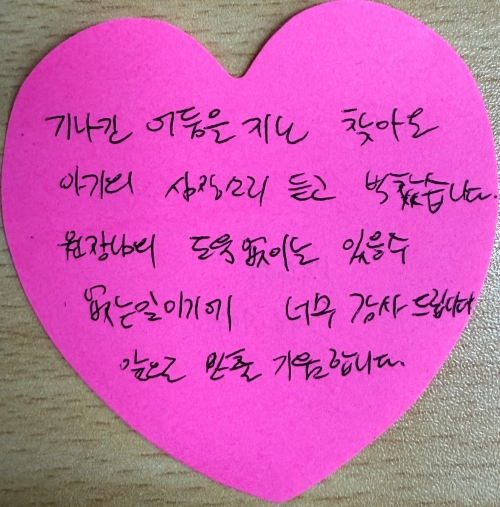 기나긴 어둠을 지난 찾아온
아기의 심장소리 듣고 벅찼습니다.
원장님의 도움 없이는 있을수
없는일이기에 너무 감사드립니다
앞으로 만출 기원합니다.